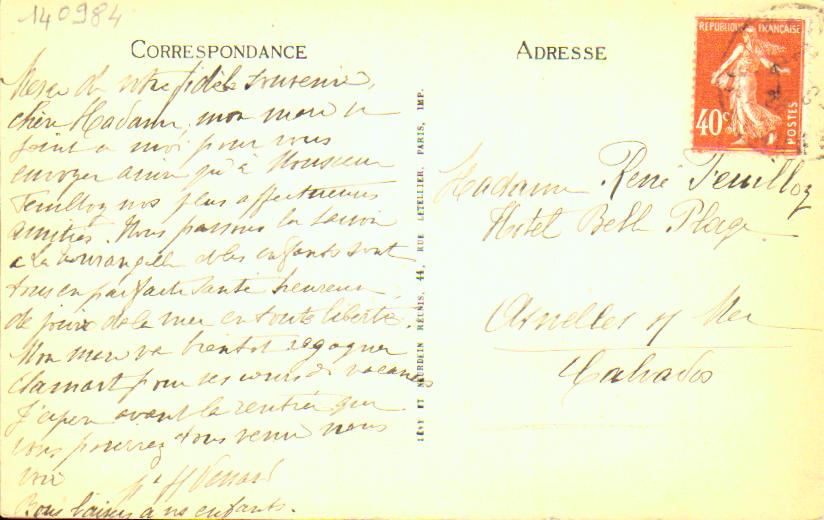 140984
CORRESPONDANCE
Merci de votre fidèle souvenir,
chère Madame, mon mari se
joint à moi pour vous
envoyer ainsi qu'à Monsieur
Feuilloy nos plus affectueuses
amitiés. Nous passons la saison
à la et les enfants sont
tous en parfaite santé heureux
de jouir de la mer en toute liberté.
Mon mari va bientôt regagner
Clamart pour ses cours de vacances
J'espère avant la rentrée que
vous pourrez tous venir nous
voir
Bons baisers à vos enfants.
LÉVY ET NEURDEIN RÉUNIS, 44, RUE LETELLIER, PARIS, IMP.
ADRESSE
RÉPUBLIQUE FRANÇAISE
40c
POSTES
Madame René Feuilloy
Hotel Belle Plage
Asnelles s/ Mer
Calvados